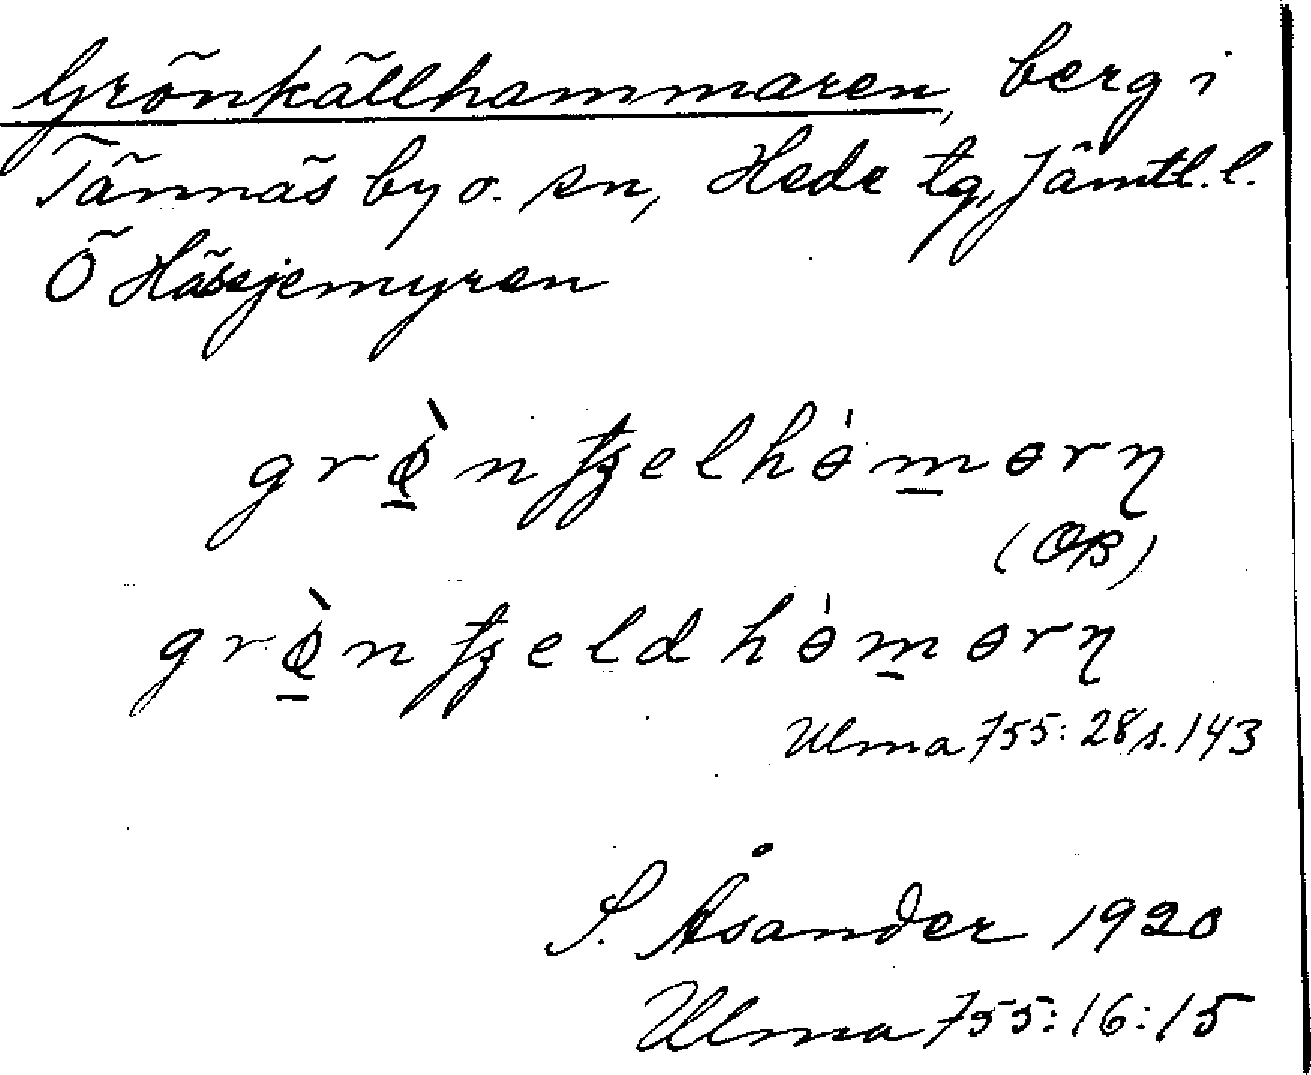 Grönkällhammaren, berg i
Tännäs by o. sn, Hede tg, Jämtl. l.
Ö Hässjemyren
grø̠̀nꞎʒelhɵ̀m̠ɵrn̥
(OB)
grø̠̀nꞎʒeldhɵ̀m̠ɵrn̥
Ulma 755: 28 s. 143
S. Åsander 1920
Ulma 755: 16: 15